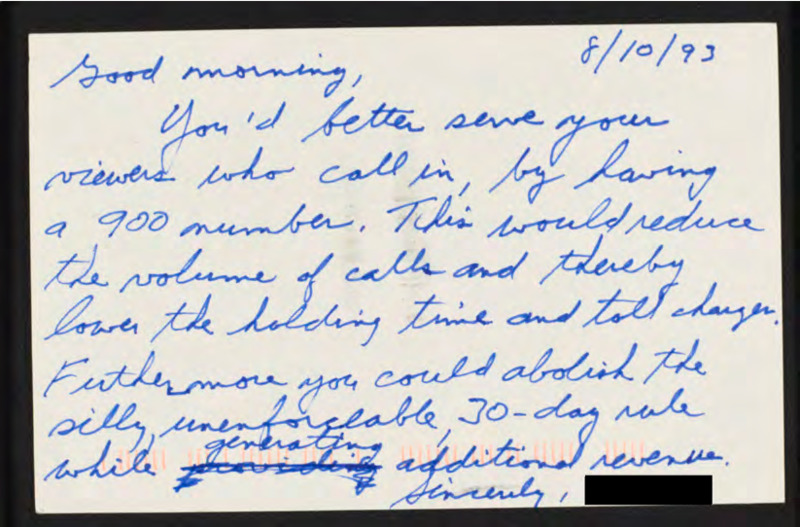 8/10/93
Good morning,
You'd better serve your
viewers who call in, by having
a 900 number. This would reduce
the volume of calls and thereby
lower the holding time and toll charges.
Futhermore you could abolish the
silly, unenforceable, 30-day rule
while generating additional revenue.
Sincerely,